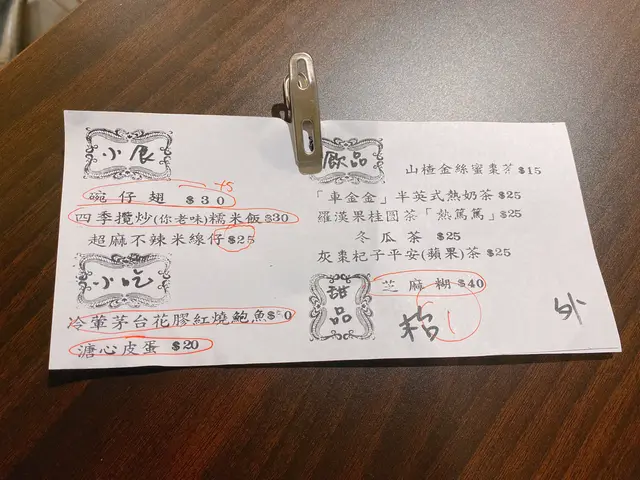 小食
碗仔翅 $30
四季攬炒(你老味)糯米飯 $30
超麻不辣米線仔 $25
小吃
冷葷茅台花膠紅燒鮑魚
溏心皮蛋 $20
飲品
山楂金絲蜜棗茶 $15
「車金金」半英式熱奶茶 $25
羅漢果桂圓茶「熱篤篤」 $25
冬瓜茶 $25
灰棗杞子平安(蘋果)茶 $25
甜品
芝麻糊 $40
外